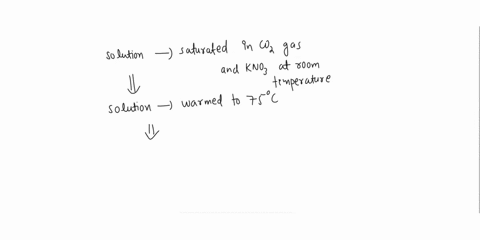 solution → saturated in CO₂ gas
and KNO₃ at room
temperature
⇓
solution → warmed to 75°C
⇓